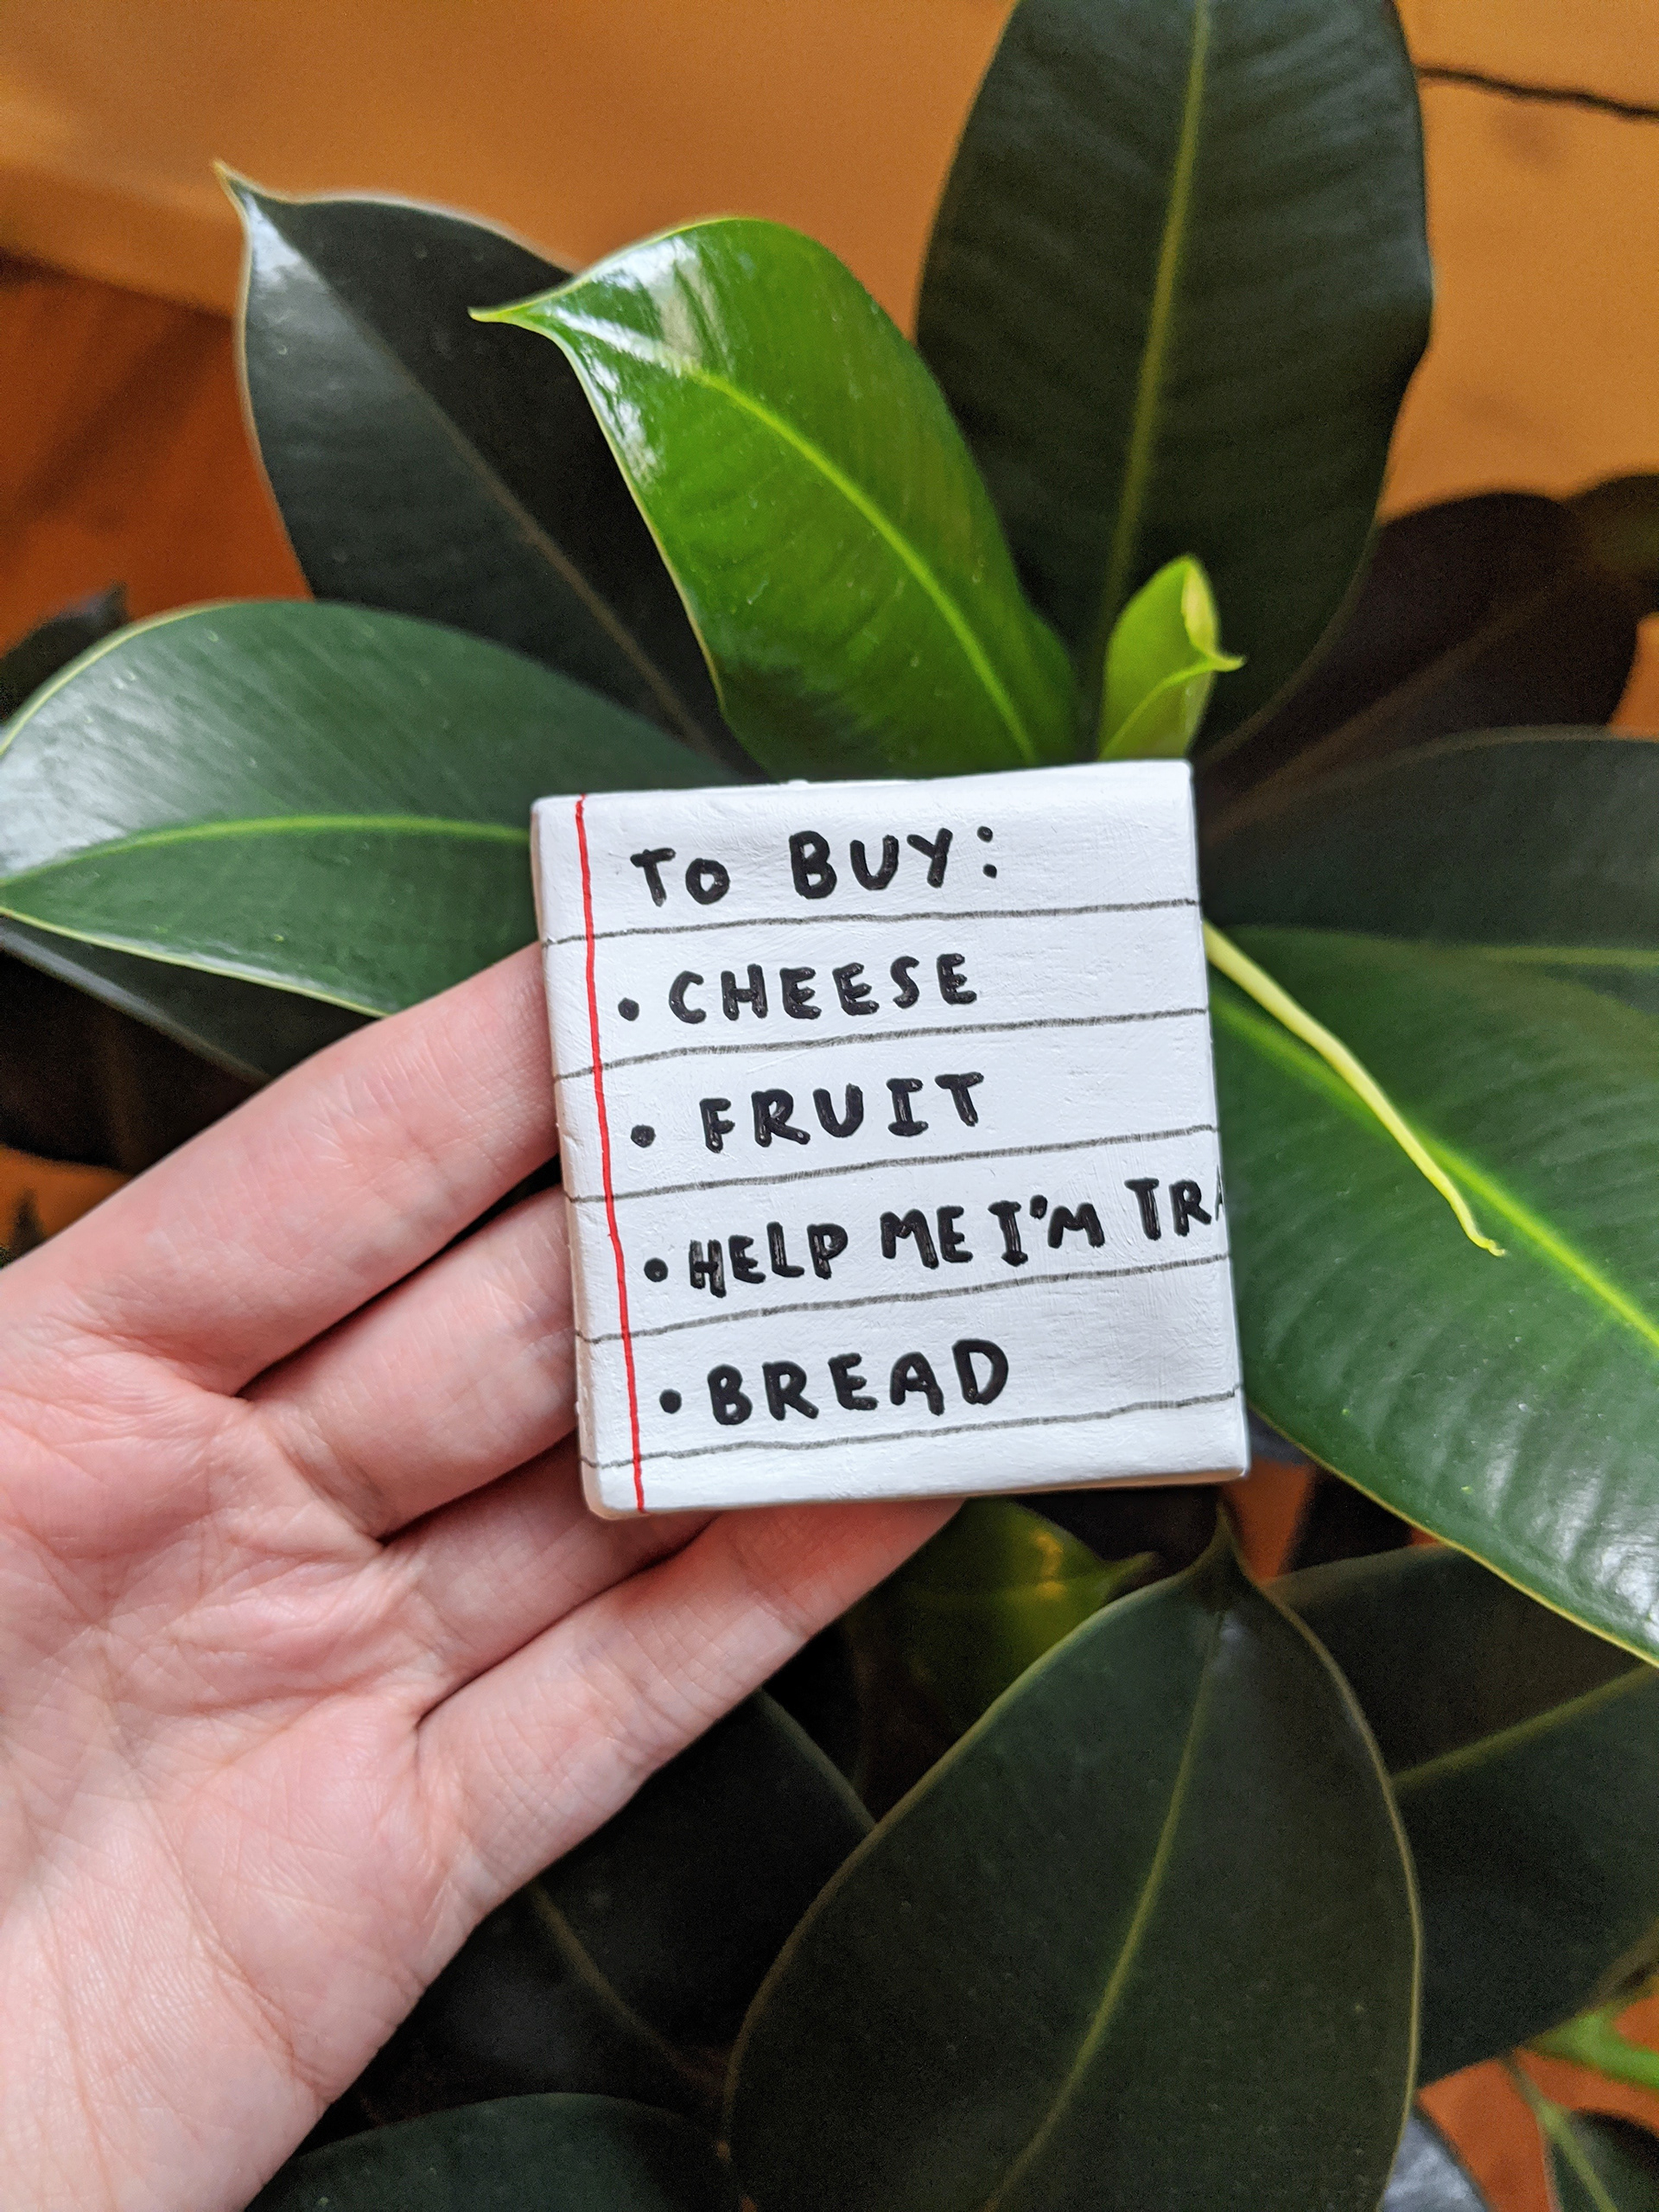 TO BUY:
• CHEESE
• FRUIT
• HELP ME I'M TRA
• BREAD